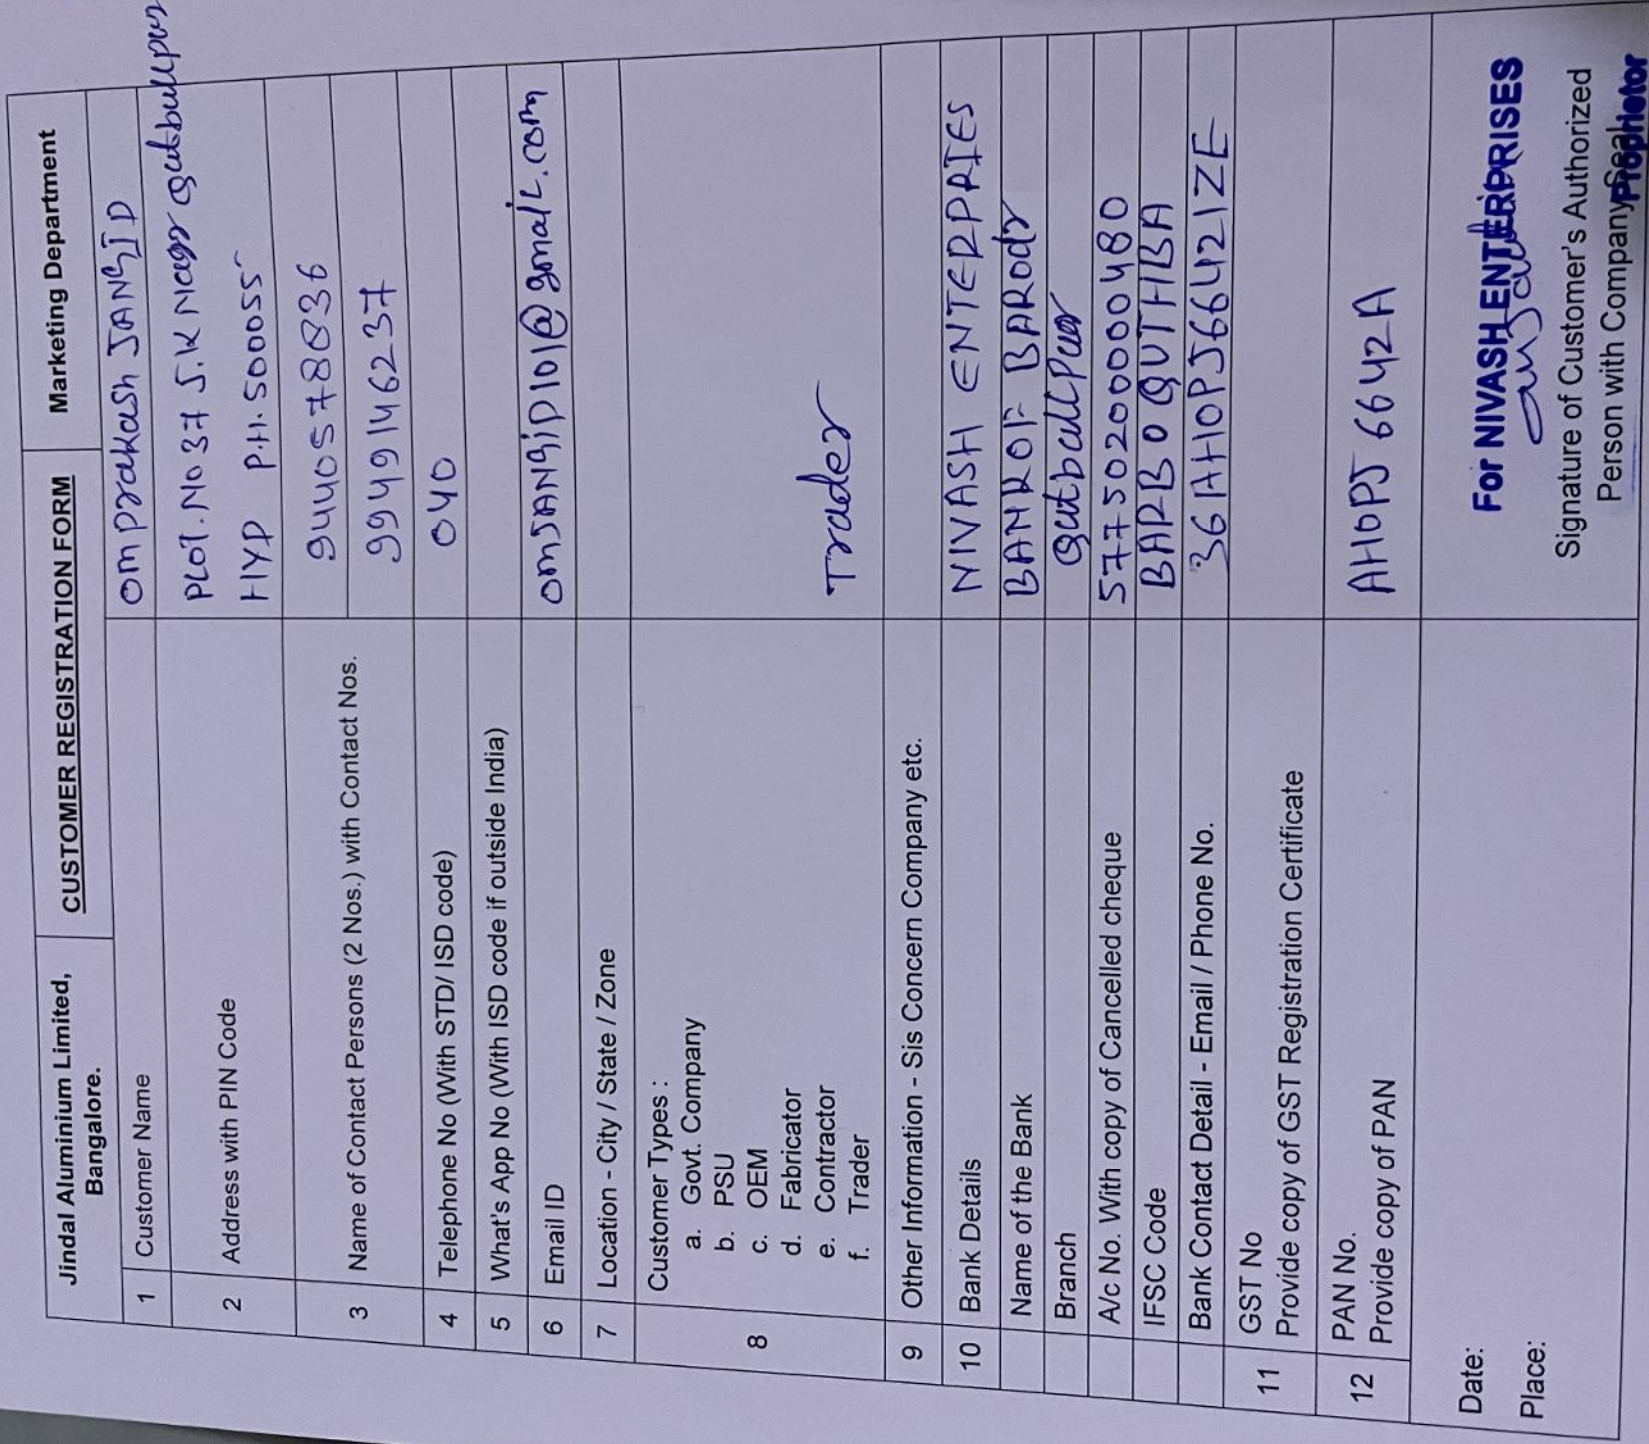 Jindal Aluminium Limited,
Bangalore.
CUSTOMER REGISTRATION FORM
Marketing Department
1 Customer Name omprakash JANGID
2 Address with PIN Code PLOT.NO 37 S.K Nagar Qutbullpur
HYD P.H.500055
3 Name of Contact Persons (2 Nos.) with Contact Nos. 9440578836
9949146237
4 Telephone No (With STD/ ISD code) 040
5 What's App No (With ISD code if outside India)
6 Email ID omJANGiD101@gmail.com
7 Location - City / State / Zone
8 Customer Types :
a. Govt. Company
b. PSU
c. OEM
d. Fabricator
e. Contractor
f. Trader Trader
9 Other Information - Sis Concern Company etc.
10 Bank Details NIVASH ENTERPRIES
Name of the Bank BANK OF BARODA
Branch Qutbullpur
A/c No. With copy of Cancelled cheque 57750200000480
IFSC Code BARB0QUTHBA
Bank Contact Detail - Email / Phone No. 36AHOPJ66421ZE
11 GST No
Provide copy of GST Registration Certificate
12 PAN No. AHOPJ6642A
Provide copy of PAN
Date:
Place:
For NIVASH ENTERPRISES
Signature of Customer's Authorized
Person with Company Seal
Proprietor